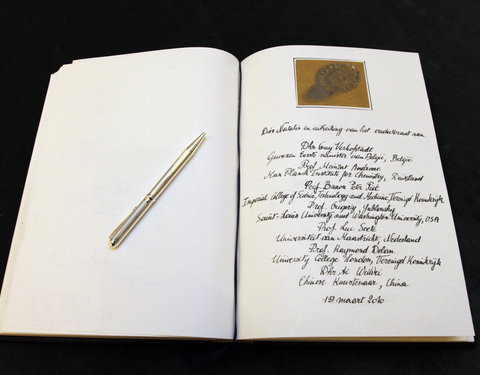 Dies Natalis en uitreiking van het eredoctoraat aan
Dhr Guy Verhofstadt
Gewezen Eerste Minister van België, België
Prof. Meinrat Andreae
Max Planck Institute for Chemistry, Duitsland
Prof. Baron Peter Piot
Imperial College of Science, Technology and Medicine, Verenigd Koninkrijk
Prof. Grigoriy Yablonsky
Saint-Louis University and Washington University, USA
Prof. Luc Soete
Universiteit van Maastricht, Nederland
Prof. Raymond Dolan
University College London, Verenigd Koninkrijk
Dhr. Ai Weiwei
Chinese Kunstenaar, China
19 maart 2010